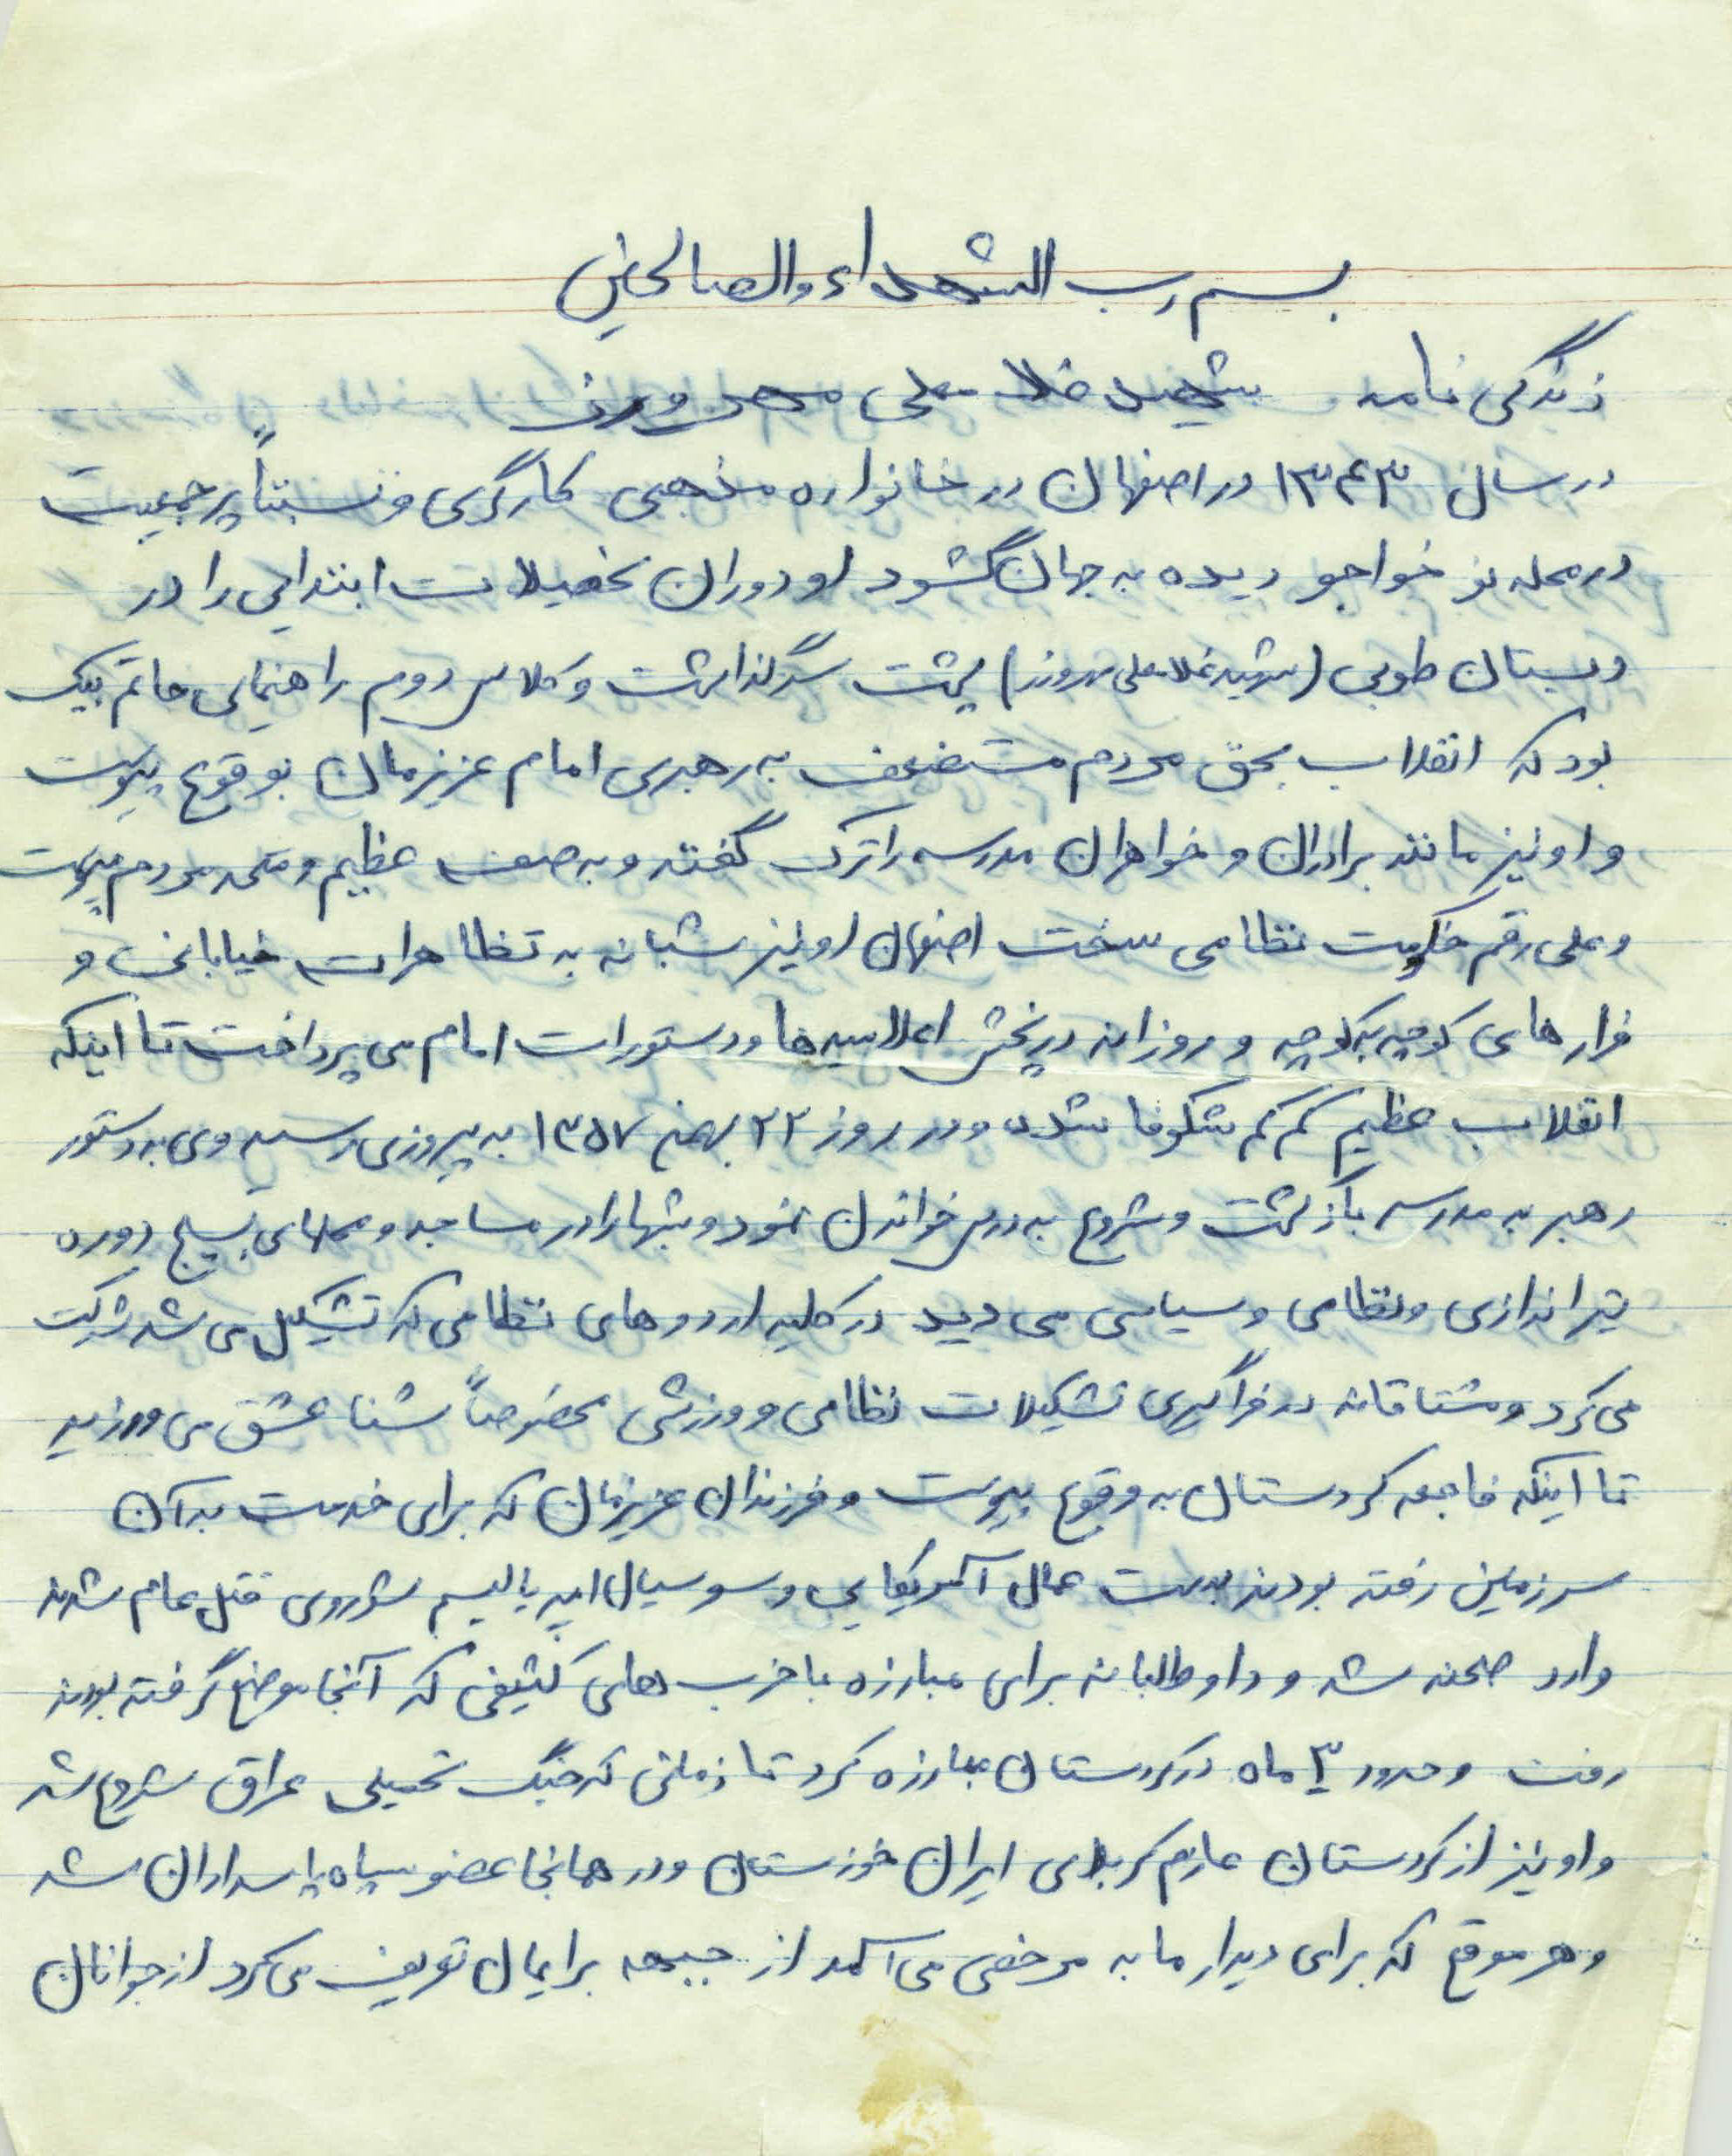 بسم رب الشهداء والصالحین
زندگی نامه شهید غلامعلی مهرورز
در سال ۱۳۴۳ در اصفهان در خانواده مذهبی کارگری و نسبتاً پر جمعیت
در محله نو خواجو دیده به جهان گشود او دوران تحصیلات ابتدایی را در
دبستان طوبی (شهید غلامعلی مهرورز) پشت سر گذاشت و کلاس دوم راهنمایی حاتم بیک
بود که انقلاب بحق مردم مستضعف به رهبری امام عزیزمان بوقوع پیوست
و او نیز مانند برادران و خواهران مدرسه را ترک گفته و به صف عظیم و متحد مردم پیوست
و علی رقم حکومت نظامی سخت اصفهان او نیز شبانه به تظاهرات خیابانی و
فرارهای کوچه به کوچه و روزانه در پخش اعلامیه ها و دستورات امام می پرداخت تا اینکه
انقلاب عظیم کم کم شکوفا شده و در روز ۲۲ بهمن ۱۳۵۷ به پیروزی رسید وی به دستور
رهبر به مدرسه بازگشت و شروع به درس خواندن نمود و شبها را در مساجد و محلهای بسیج دوره
تیراندازی و نظامی و سیاسی می دید در کلیه اردوهای نظامی که تشکیل می شد شرکت
می کرد و مشتاقانه در فراگیری تشکیلات نظامی و ورزشی مخصوصاً شنا عشق می ورزید
تا اینکه فاجعه کردستان به وقوع پیوست و فرزندان عزیزمان که برای خدمت به آن
سرزمین رفته بودند بدست عمال آمریکایی و سوسیال امپریالیسم شوروی قتل عام شدند
وارد صحنه شد و داوطلبانه برای مبارزه با حزب های کثیفی که آنجا موضع گرفته بودند
رفت و حدود ۳ ماه در کردستان مبارزه کرد تا زمانی که جنگ تحمیلی عراق شروع شد
و او نیز از کردستان عازم کربلای ایران خوزستان و در همانجا عضو سپاه پاسداران شد
و هر موقع که برای دیدار ما به مرخصی می آمد از جبهه برایمان تعریف می کرد از جوانان